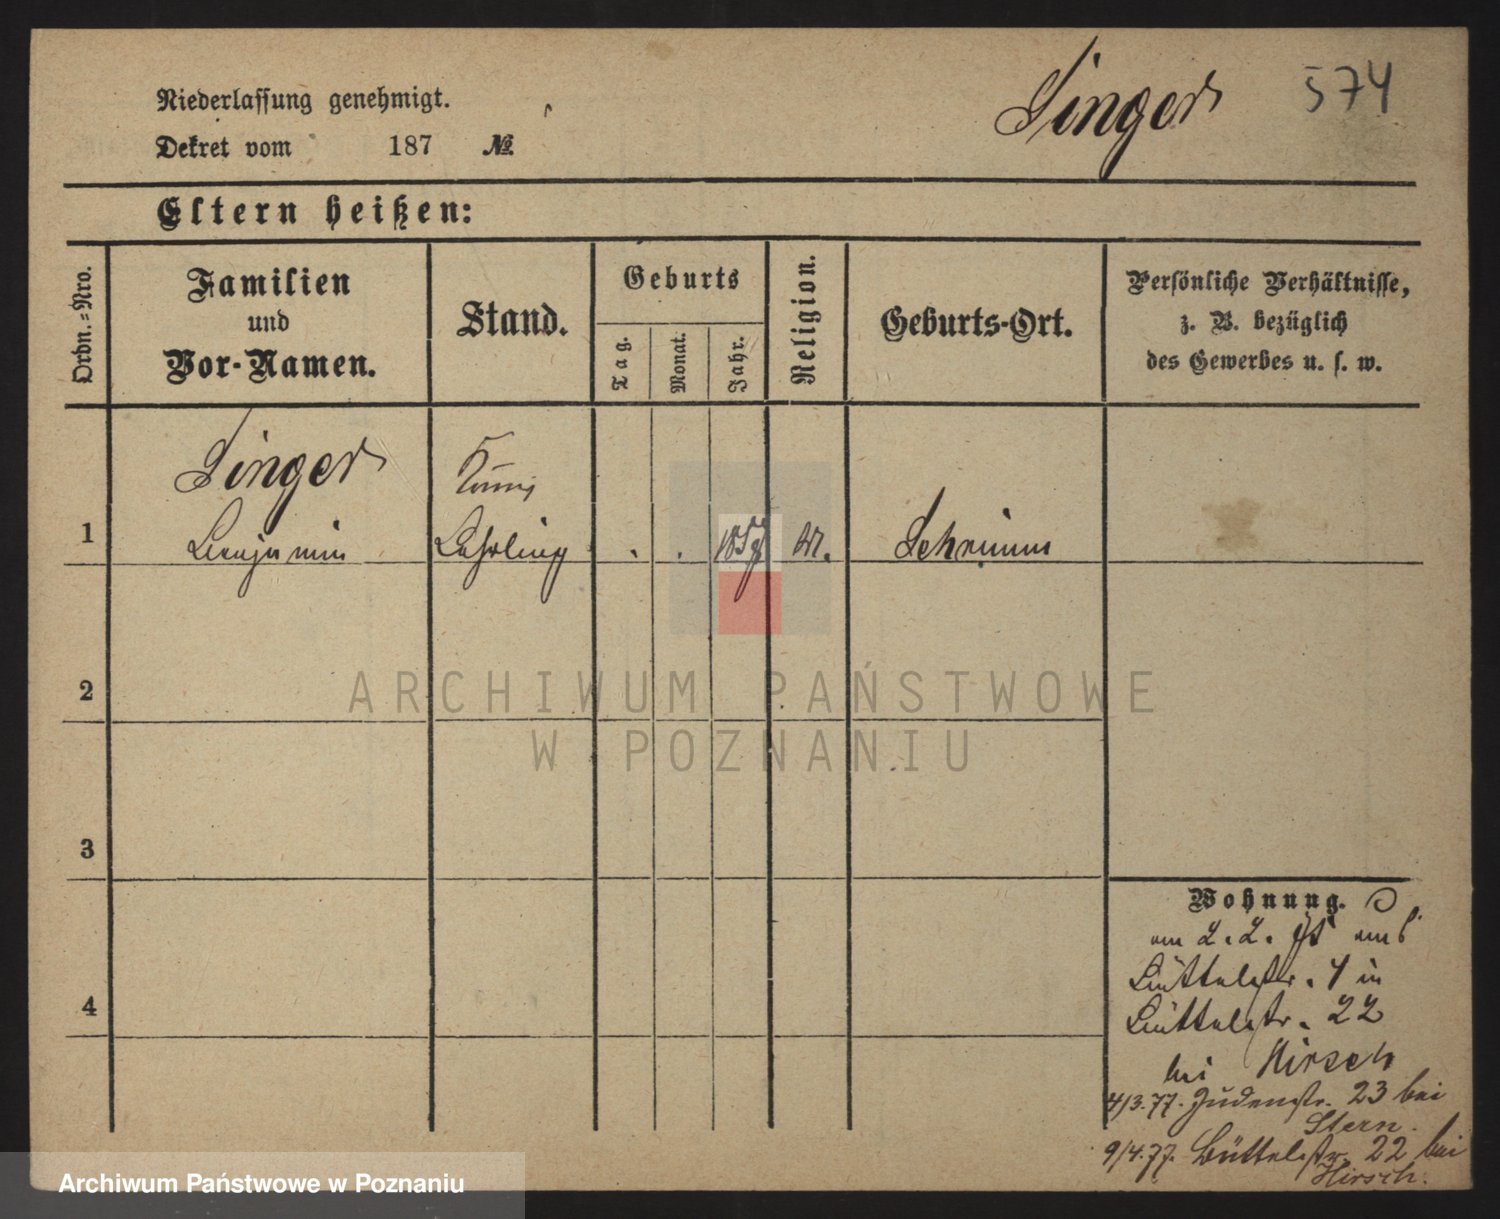 Singer 574
Niederlassung genehmigt.
Dekret vom 187 №
Eltern heißen:
Ordn.-Nro.
Familien
und
Vor-Namen.
Stand.
Geburts
Tag.
Monat.
Jahr.
Religion.
Geburts-Ort.
Persönliche Verhältnisse,
z. B. bezüglich
des Gewerbes u. s. w.
Singer
1 Benjamin Lehrling Schrimm
2
ARCHIWUM PAŃSTWOWE
W POZNANIU
3
4
Wohnung.
Büttelstr. 4 in
Büttelstr. 22
bei Hirsch
4/3.77. Judenstr. 23 bei
Stern.
9/4.77. Büttelstr. 22 bei
Hirsch.
Archiwum Państwowe w Poznaniu